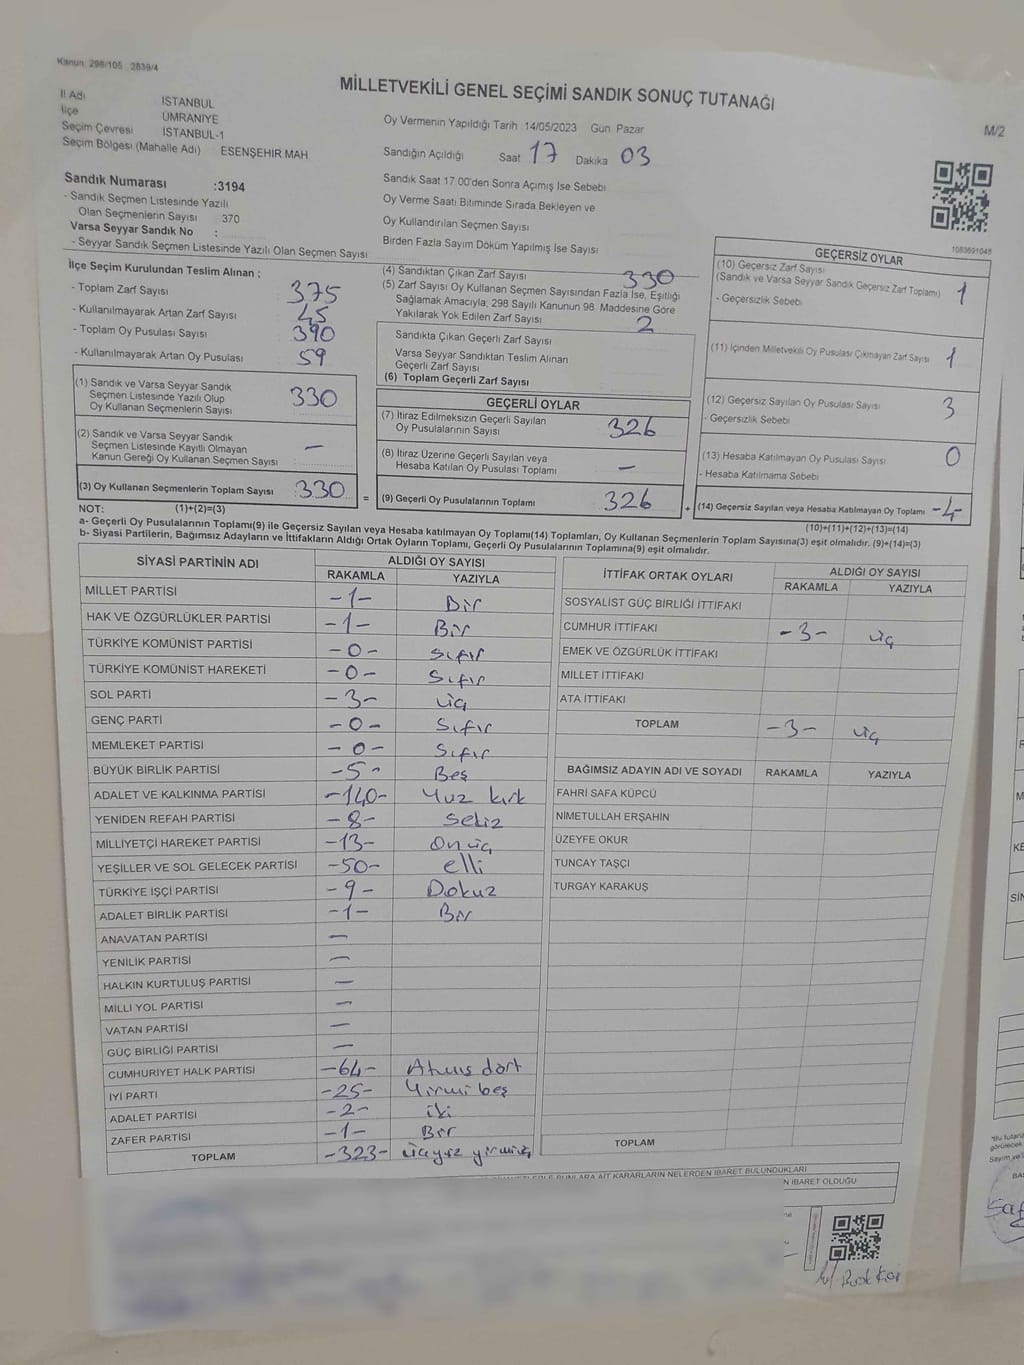 Kanun: 298/105 : 2839/4
MİLLETVEKİLİ GENEL SEÇİMİ SANDIK SONUÇ TUTANAĞI
M/2
İl Adı İSTANBUL
İlçe ÜMRANİYE
Seçim Çevresi İSTANBUL-1
Seçim Bölgesi (Mahalle Adı) ESENŞEHİR MAH
Oy Vermenin Yapıldığı Tarih :14/05/2023 Gün: Pazar
Sandığın Açıldığı Saat 17 Dakika 03
Sandık Saat 17:00'den Sonra Açımış İse Sebebi
Oy Verme Saati Bitiminde Sırada Bekleyen ve
Oy Kullandırılan Seçmen Sayısı
Birden Fazla Sayım Döküm Yapılmış İse Sayısı
Sandık Numarası :3194
- Sandık Seçmen Listesinde Yazılı
Olan Seçmenlerin Sayısı 370
Varsa Seyyar Sandık No :
- Seyyar Sandık Seçmen Listesinde Yazılı Olan Seçmen Sayısı
1083691045
İlçe Seçim Kurulundan Teslim Alınan ;
- Toplam Zarf Sayısı 375
- Kullanılmayarak Artan Zarf Sayısı 45
- Toplam Oy Pusulası Sayısı 390
- Kullanılmayarak Artan Oy Pusulası 59
(1) Sandık ve Varsa Seyyar Sandık
Seçmen Listesinde Yazılı Olup
Oy Kullanan Seçmenlerin Sayısı 330
(2) Sandık ve Varsa Seyyar Sandık
Seçmen Listesinde Kayıtlı Olmayan
Kanun Gereği Oy Kullanan Seçmen Sayısı —
(3) Oy Kullanan Seçmenlerin Toplam Sayısı 330 =
(4) Sandıktan Çıkan Zarf Sayısı 330
(5) Zarf Sayısı Oy Kullanan Seçmen Sayısından Fazla İse, Eşitliği
Sağlamak Amacıyla, 298 Sayılı Kanunun 98. Maddesine Göre
Yakılarak Yok Edilen Zarf Sayısı 2
Sandıkta Çıkan Geçerli Zarf Sayısı
Varsa Seyyar Sandıktan Teslim Alınan
Geçerli Zarf Sayısı
(6) Toplam Geçerli Zarf Sayısı
GEÇERLİ OYLAR
(7) İtiraz Edilmeksizin Geçerli Sayılan
Oy Pusulalarının Sayısı 326
(8) İtiraz Üzerine Geçerli Sayılan veya
Hesaba Katılan Oy Pusulası Toplamı —
(9) Geçerli Oy Pusulalarının Toplamı 326 +
GEÇERSİZ OYLAR
(10) Geçersiz Zarf Sayısı
(Sandık ve Varsa Seyyar Sandık Geçersiz Zarf Toplamı) 1
- Geçersizlik Sebebi
(11) İçinden Milletvekili Oy Pusulası Çıkmayan Zarf Sayısı 1
(12) Geçersiz Sayılan Oy Pusulası Sayısı 3
- Geçersizlik Sebebi
(13) Hesaba Katılmayan Oy Pusulası Sayısı 0
- Hesaba Katılmama Sebebi
(14) Geçersiz Sayılan veya Hesaba Katılmayan Oy Toplamı -4-
NOT: (1)+(2)=(3)
(10)+(11)+(12)+(13)=(14)
a- Geçerli Oy Pusulalarının Toplamı(9) ile Geçersiz Sayılan veya Hesaba katılmayan Oy Toplamı(14) Toplamları, Oy Kullanan Seçmenlerin Toplam Sayısına(3) eşit olmalıdır. (9)+(14)=(3)
b- Siyasi Partilerin, Bağımsız Adayların ve İttifakların Aldığı Ortak Oyların Toplamı, Geçerli Oy Pusulalarının Toplamına(9) eşit olmalıdır.
SİYASİ PARTİNİN ADI ALDIĞI OY SAYISI
RAKAMLA YAZIYLA
MİLLET PARTİSİ -1- Bir
HAK VE ÖZGÜRLÜKLER PARTİSİ -1- Bir
TÜRKİYE KOMÜNİST PARTİSİ -0- Sıfır
TÜRKİYE KOMÜNİST HAREKETİ -0- Sıfır
SOL PARTİ -3- üç
GENÇ PARTİ -0- Sıfır
MEMLEKET PARTİSİ -0- Sıfır
BÜYÜK BİRLİK PARTİSİ -5- Beş
ADALET VE KALKINMA PARTİSİ -140- Yuz kırk
YENİDEN REFAH PARTİSİ -8- Sekiz
MİLLİYETÇİ HAREKET PARTİSİ -13- Onüç
YEŞİLLER VE SOL GELECEK PARTİSİ -50- elli
TÜRKİYE İŞÇİ PARTİSİ -9- Dokuz
ADALET BİRLİK PARTİSİ -1- Bir
ANAVATAN PARTİSİ —
YENİLİK PARTİSİ —
HALKIN KURTULUŞ PARTİSİ —
MİLLİ YOL PARTİSİ —
VATAN PARTİSİ —
GÜÇ BİRLİĞİ PARTİSİ —
CUMHURİYET HALK PARTİSİ -64- Atmış dört
İYİ PARTİ -25- Yirmi beş
ADALET PARTİSİ -2- iki
ZAFER PARTİSİ -1- Bir
TOPLAM -323- üçyüz yirmiüç
İTTİFAK ORTAK OYLARI ALDIĞI OY SAYISI
RAKAMLA YAZIYLA
SOSYALİST GÜÇ BİRLİĞİ İTTİFAKI
CUMHUR İTTİFAKI -3- üç
EMEK VE ÖZGÜRLÜK İTTİFAKI
MİLLET İTTİFAKI
ATA İTTİFAKI
TOPLAM -3- üç
BAĞIMSIZ ADAYIN ADI VE SOYADI RAKAMLA YAZIYLA
FAHRİ SAFA KÜPCÜ
NİMETULLAH ERŞAHİN
ÜZEYFE OKUR
TUNCAY TAŞÇI
TURGAY KARAKUŞ
TOPLAM
BUNLARA AİT KARARLARIN NELERDEN İBARET BULUNDUKLARI
İBARET OLDUĞU